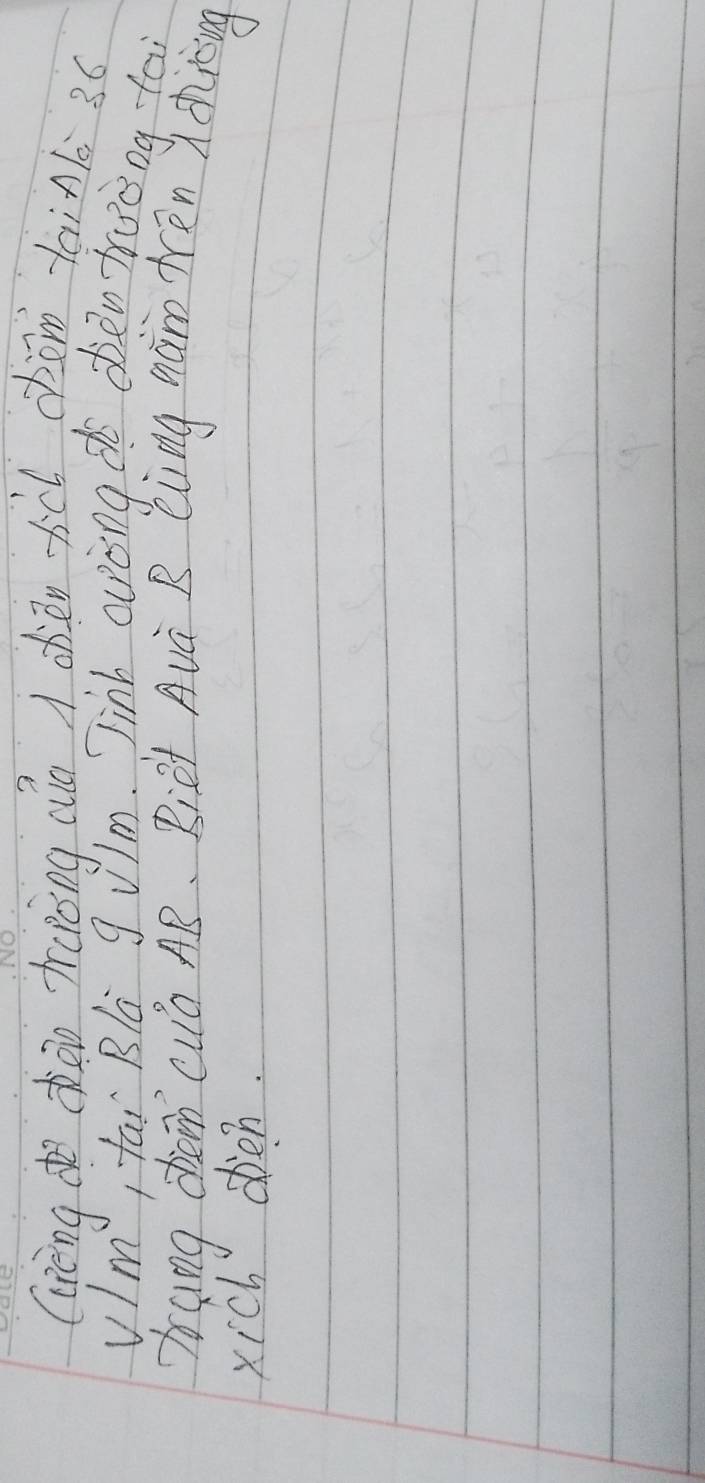 Date No.
Cường độ điện trường của 1 điện tích điểm tại A là 36
V/m, tại B là 9 V/m. Tính cường độ điện trường tại
Trung điểm của AB. Biết A và B cùng nằm trên 1 đường
xích điện.